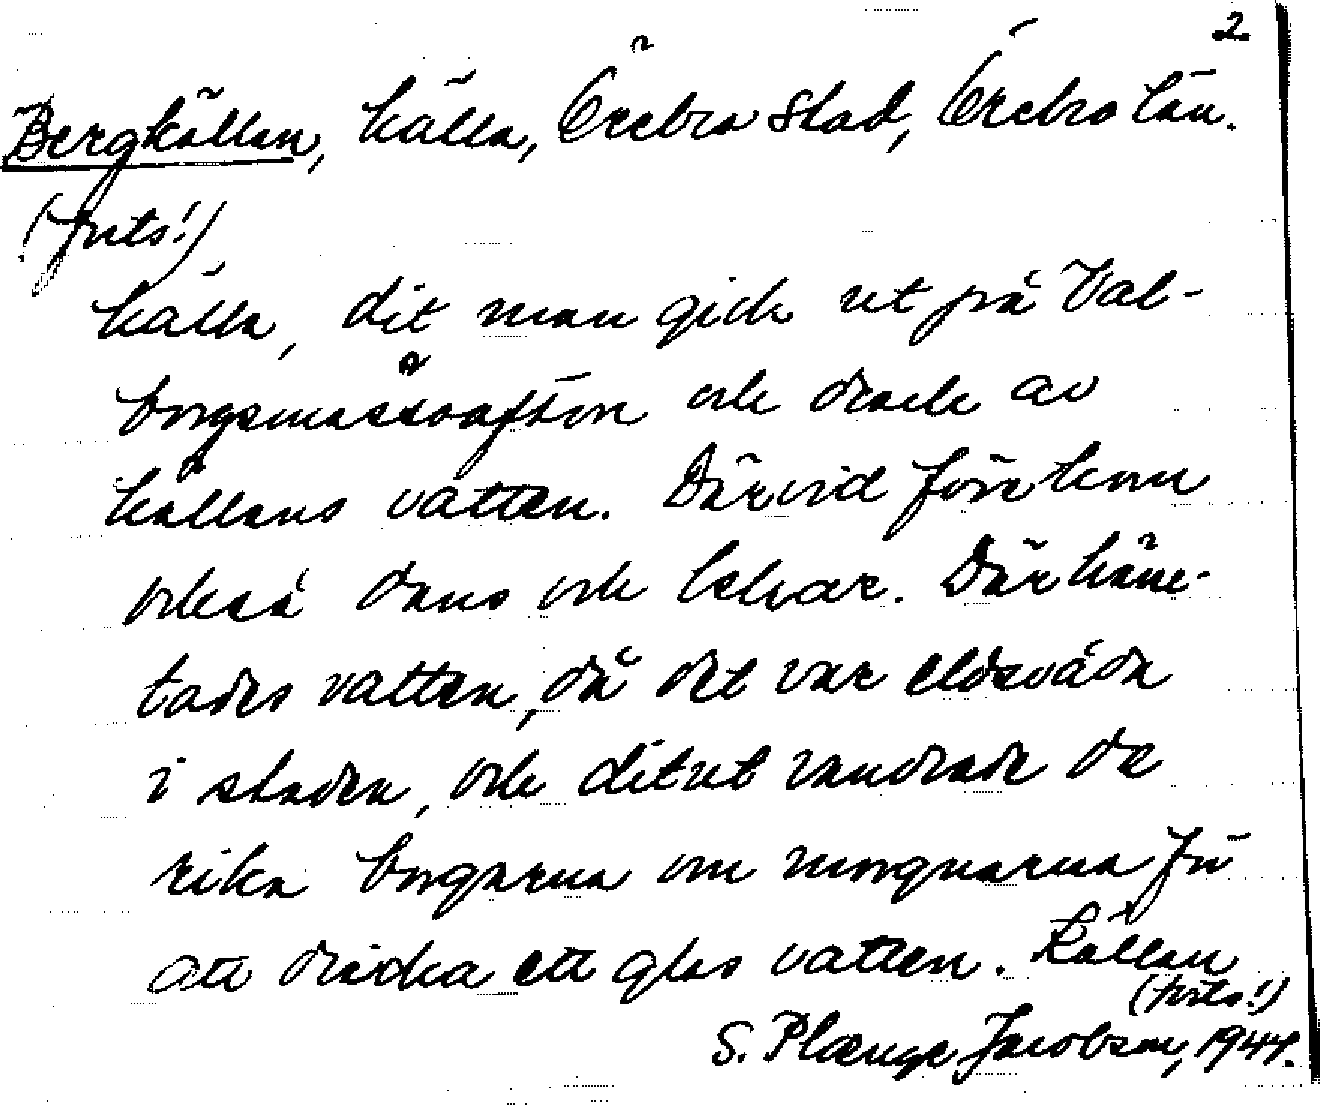 2
Bergkällan, källa, Örebro stad, Örebro län.
(forts!)
källa, dit man gick ut på Val-
borgsmässoafton och drack av
källans vatten. Därvid förekom
också dans och lekar. Där häm-
tades vatten, då det var eldsvåda
i staden, och ditut vandrade de
rika borgarna om morgnarna för
att dricka ett glas vatten. Källan
(forts!)
S. Plænge Jacobson, 1944.